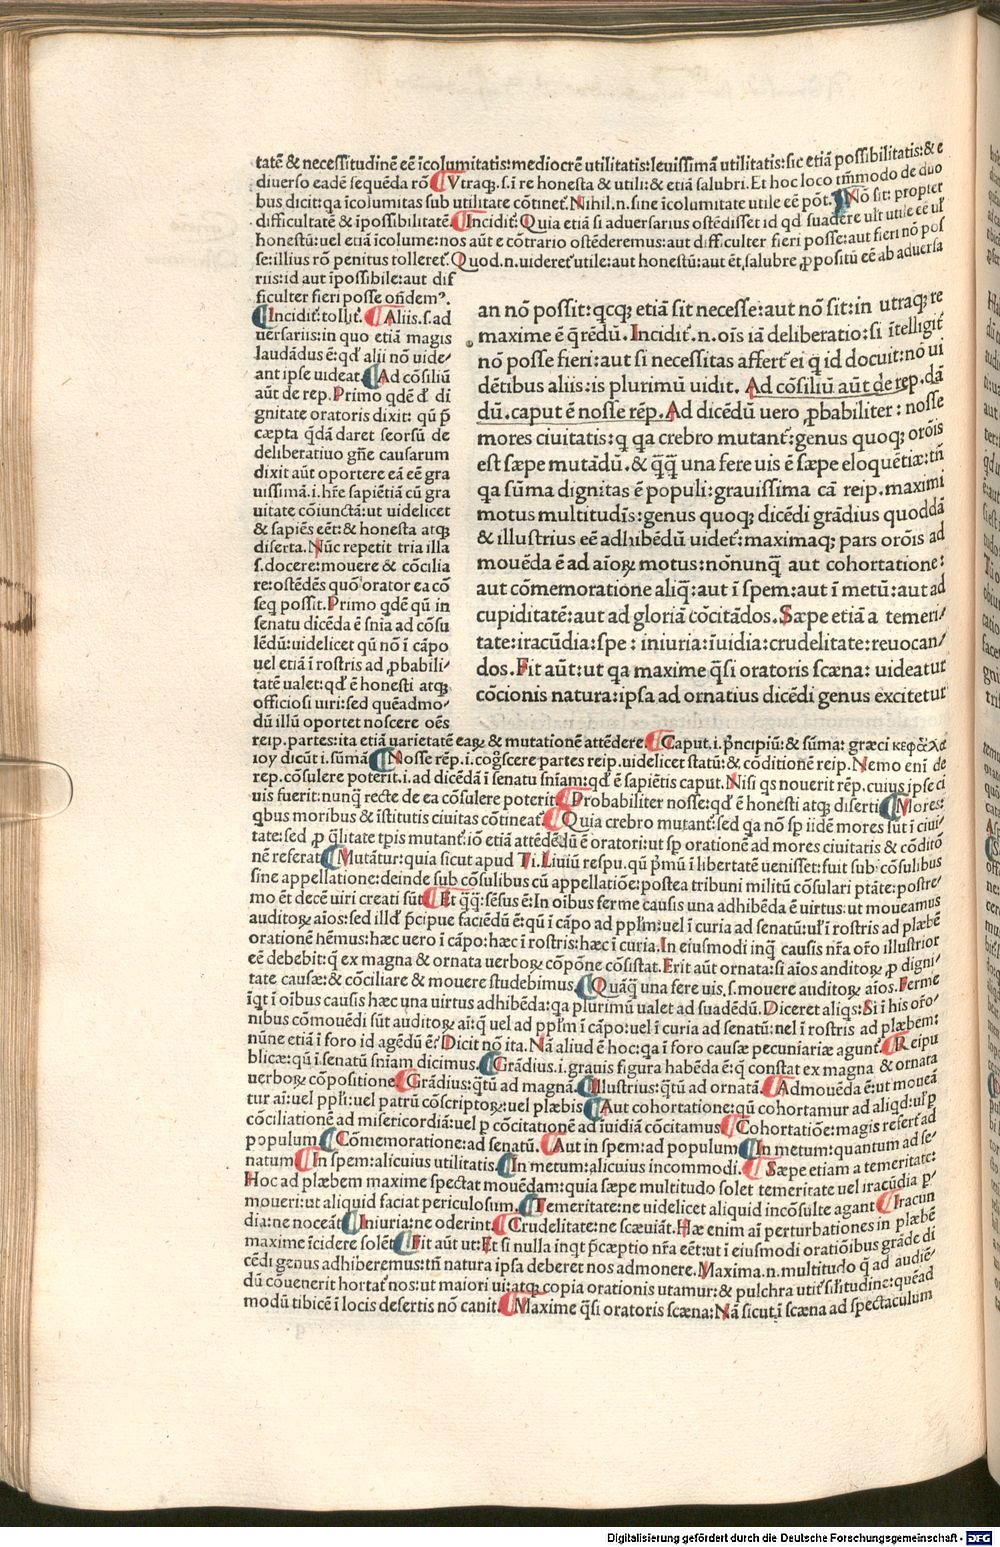 tatē & necessitudinē eē īcolumitatis:mediocrē utilitatis:leuissimā utilitatis:sic etiā possibilitatis:& e
diuerso eadē sequēda rō ¶ Vtraq;.s.ī re honesta & utili:& etiā salubri. Et hoc loco tm̄modo de duo
bus dicit:qa īcolumitas sub utilitate cōtinet᷑. Nihil.n.sine īcolumitate utile eē pōt. ¶ Nō sit: propter
difficultatē & īpossibilitatē. ¶ Incidit᷑: Quia etiā si aduersarius ostēdisset id qd suadere uℓt utile eē uℓ
honestū:uel etiā īcolume:nos aūt e cōtrario ostēderemus:aut difficulter fieri posse:aut fieri nō pos
se:illius rō penitus tolleret᷑. Quod.n.uideret᷑ utile:aut honestū:aut ēt,salubre ꝓpositū eē ab aduersa
riis:id aut īpossibile:aut dif
ficulter fieri posse on̄dem⁹.
¶ Incidit᷑:tollit᷑. ¶ Aliis.s.ad
uersariis:in quo etiā magis
laudādus ē:qd̄ alii nō uide/
ant ipse uideat. ¶ Ad cōsiliū
aūt de rep. Primo qdē d̄ di
gnitate oratoris dixit: qū p̄
cæpta q̄dā daret seorsū de
deliberatiuo gn̄e causarum
dixit aūt oportere eā eē gra
uissimā.i.hr̄e sapiētiā cū gra
uitate cōiunctā:ut uidelicet
& sapiēs eēt:& honesta atq;
diserta. Nūc repetit tria illa
s.docere:mouere & cōcilia
re:ostēdēs quō orator ea cō
seq possit. Primo qdē qū in
senatu dicēda ē sn̄ia ad cōsu
lēdū:uidelicet qū nō ī cāpo
uel etiā ī rostris ad ꝓbabili/
tatē ualet:qd̄ ē honesti atq;
officiosi uiri:sed quēadmo/
dū illū oportet noscere oēs
an nō possit:qcq; etiā sit necesse:aut nō sit:in utraq; re
maxime ē q̄rēdū. Incidit᷑.n.oīs iā deliberatio:si ītelligit᷑
nō posse fieri:aut si necessitas affert᷑ ei q id docuit:nō ui
dētibus aliis:is plurimū uidit. Ad cōsiliū aūt de rep.dā
dū.caput ē nosse rēp. Ad dicēdū uero ꝓbabiliter: nosse
mores ciuitatis:q qa crebro mutant᷑:genus quoq; orōis
est sæpe mutādū.& q̄q̄ una fere uis ē sæpe eloquētiæ:tn̄
qa sūma dignitas ē populi:grauissima cā reip.maximi
motus multitudīs:genus quoq; dicēdi grādius quoddā
& illustrius eē adhibēdū uidet᷑:maximaq; pars orōis ad
mouēda ē ad aīoꝝ motus:nōnunq̄ aut cohortatione:
aut cōmemoratione aliq̄:aut ī spem:aut ī metū:aut ad
cupiditatē:aut ad gloriā cōcitādos. Sæpe etiā a temeri/
tate:iracūdia:spe: iniuria:īuidia:crudelitate:reuocan/
dos. Fit aūt:ut qa maxime q̄si oratoris scæna: uideatur
cōcionis natura:ipsa ad ornatius dicēdi genus excitetur
reip.partes:ita etiā uarietatē eaꝝ & mutationē attēdere. ¶ Caput.i.p̄ncipiū:& sūma: græci κεφάλα
ιον dicūt.i.sūmā ¶ Nosse rēp.i.coḡscere partes reip.uidelicet statū:& cōditionē reip. Nemo eni de
rep.cōsulere poterit.i.ad dicēdā ī senatu sn̄iam:qd̄ ē sapiētis caput. Nisi qs nouerit rēp.cuius ipse ci
uis fuerit:nunq̄ recte de ea cōsulere poterit ¶ Probabiliter nosse:qd̄ ē honesti atq; diserti ¶ Mores:
qbus moribus & īstitutis ciuitas cōtineat᷑ ¶ Quia crebro mutant᷑:sed qa nō sp̄ iidē mores sūt ī ciui/
tate:sed ꝓ q̄litate tp̄is mutant᷑:iō etiā attēdēdū ē oratori:ut sp̄ orationē ad mores ciuitatis & cōditō
nē referat ¶ Mutātur:quia sicut apud Ti. Liuiū respu.qū p̄mū ī libertatē uenisset:fuit sub cōsulibus
sine appellatione:deinde sub cōsulibus cū appellatiōe:postea tribuni militū cōsulari ptāte:postre/
mo ēt decē uiri creati sūt ¶ Et q̄q̄:sēsus ē: In oibus ferme causis una adhibēda ē uirtus:ut moueamus
auditoꝝ aīos:sed illd̄ p̄cipue faciēdū ē:qū ī cāpo ad ppl̄m:uel ī curia ad senatū:uℓ ī rostris ad plæbē
orationē hēmus:hæc uero ī cāpo:hæc ī rostris:hæc ī curia. In eiusmodi inq̄ causis nr̄a or̄o illustrior
eē debebit:q̄ ex magna & ornata uerboꝝ cōpōne cōsistat. Erit aūt ornata:si aīos anditoꝝ ꝓ digni/
tate causæ:& cōciliare & mouere studebimus. ¶ Quāq̄ una fere uis.s.mouere auditoꝝ aīos. Ferme
īqt ī oibus causis hæc una uirtus adhibēda:qa plurimū ualet ad suadēdū. Diceret aliqs: Si ī his or̄o/
nibus cōmouēdi sūt auditoꝝ aī:q̄ uel ad ppl̄m ī cāpo:uel ī curia ad senatū:nel ī rostris ad plæbem:
nūne etiā ī foro id agēdū ē? Dicit nō ita. Nā aliud ē hoc:qa ī foro causæ pecuniariæ agunt᷑. ¶ Reipu
blicæ:qū ī senatū sn̄iam dicimus. ¶ Grādius.i.grauis figura habēda ē:q̄ constat ex magna & ornata
uerboꝝ cōpositione ¶ Grādius:q̄tū ad magnā. ¶ Illustrius:q̄tū ad ornatā. ¶ Admouēda ē:ut moueā
tur aī:uel ppl̄i:uel patrū cōscriptoꝝ:uel plæbis ¶ Aut cohortatione:qū cohortamur ad aliqd:uℓ p
cōciliationē ad misericordiā:uel p cōcitationē ad īuidiā cōcitamus ¶ Cohortatiōe:magis refert᷑ ad
populum ¶ Cōmemoratione:ad senatū. ¶ Aut in spem:ad populum ¶ In metum:quantum ad se/
natum ¶ In spem:alicuius utilitatis. ¶ In metum:alicuius incommodi. ¶ Sæpe etiam a temeritate:
Hoc ad plæbem maxime spectat mouēdam:quia sæpe multitudo solet temeritate uel iracūdia p/
moueri:ut aliquid faciat periculosum. ¶ Temeritate:ne uidelicet aliquid incōsulte agant ¶ Iracun
dia:ne noceāt ¶ Iniuria:ne oderint. ¶ Crudelitate:ne scæuiāt. Hæ enim aī perturbationes in plæbē
maxime īcidere solēt ¶ Fit aūt ut: Et si nulla inqt p̄cæptio nr̄a eēt:ut ī eiusmodi oratiōibus grāde di
cēdi genus adhiberemus:tn̄ natura ipsa deberet nos admonere. Maxima.n.multitudo q̄ ad audiē/
dū cōuenerit hortat᷑ nos:ut maiori ui:atq; copia orationis utamur:& pulchra utit᷑ sil̄itudine:quēad
modū tibicē ī locis desertis nō canit. ¶ Maxime q̄si oratoris scæna: Nā sicut ī scæna ad spectaculum
Digitalisierung gefördert durch die Deutsche Forschungsgemeinschaft - DFG